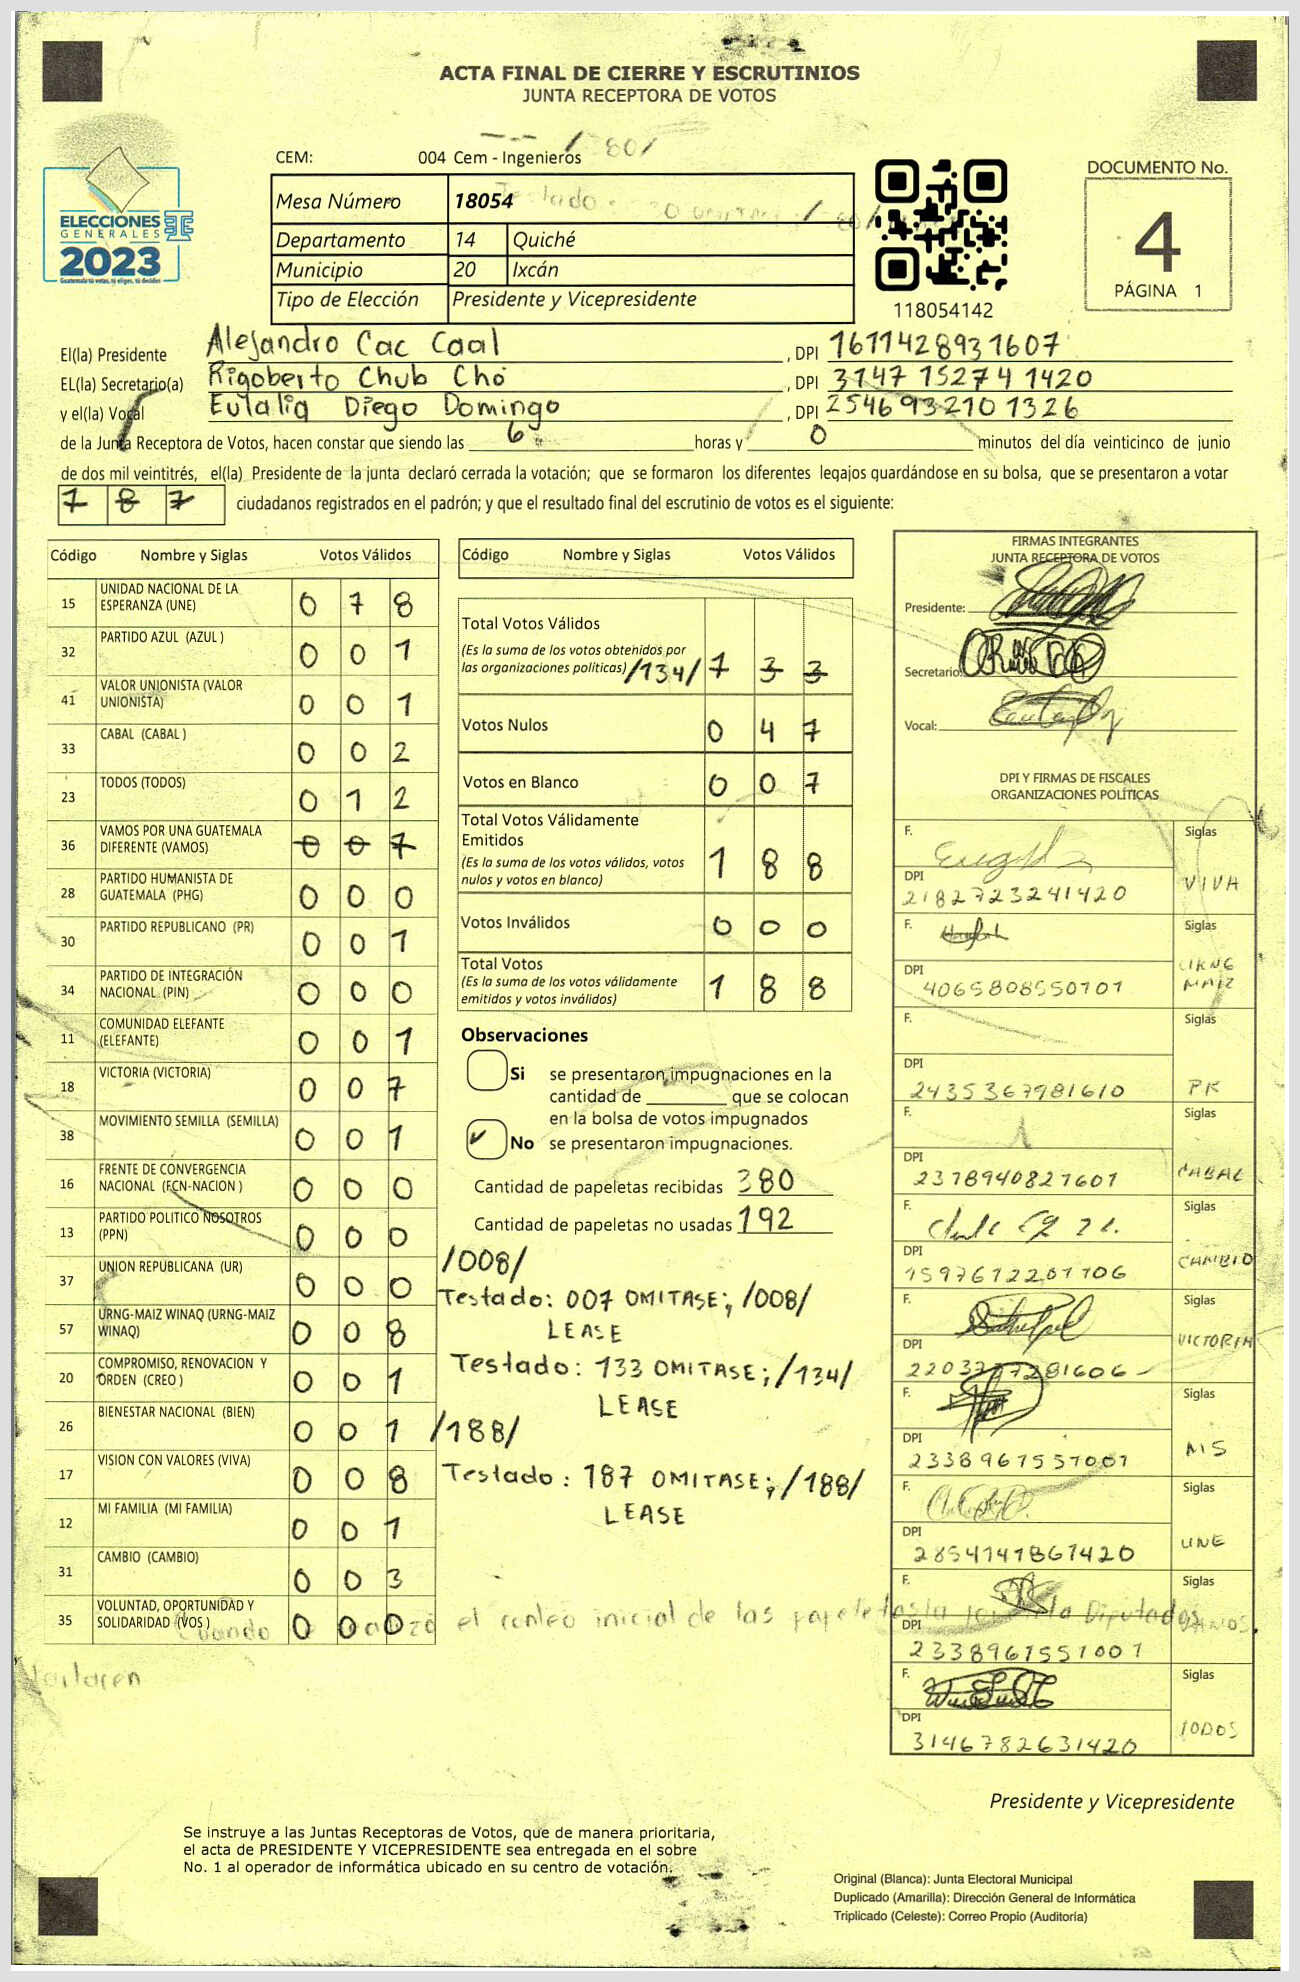 ACTA FINAL DE CIERRE Y ESCRUTINIOS
JUNTA RECEPTORA DE VOTOS
CEM: 004 Cem - Ingenieros
Mesa Número 18054
Departamento 14 Quiché
Municipio 20 Ixcán
Tipo de Elección Presidente y Vicepresidente
118054142
DOCUMENTO No.
4
PÁGINA 1
ELECCIONES
GENERALES
2023
Guatemala tú votas, tú eliges, tú decides
El(la) Presidente Alejandro Cac Caal , DPI 1611428931607
EL(la) Secretario(a) Rigoberto Chub Cho , DPI 3147 15274 1420
y el(la) Vocal Eulalia Diego Domingo , DPI 254693210 1326
de la Junta Receptora de Votos, hacen constar que siendo las 6 horas y 0 minutos del día veinticinco de junio
de dos mil veintitrés, el(la) Presidente de la junta declaró cerrada la votación; que se formaron los diferentes legajos quardándose en su bolsa, que se presentaron a votar
187 ciudadanos registrados en el padrón; y que el resultado final del escrutinio de votos es el siguiente:
Código Nombre y Siglas Votos Válidos
15 UNIDAD NACIONAL DE LA ESPERANZA (UNE) 0 7 8
32 PARTIDO AZUL (AZUL ) 0 0 1
41 VALOR UNIONISTA (VALOR UNIONISTA) 0 0 1
33 CABAL (CABAL ) 0 0 2
23 TODOS (TODOS) 0 1 2
36 VAMOS POR UNA GUATEMALA DIFERENTE (VAMOS) 0 0 7
28 PARTIDO HUMANISTA DE GUATEMALA (PHG) 0 0 0
30 PARTIDO REPUBLICANO (PR) 0 0 1
34 PARTIDO DE INTEGRACIÓN NACIONAL (PIN) 0 0 0
11 COMUNIDAD ELEFANTE (ELEFANTE) 0 0 1
18 VICTORIA (VICTORIA) 0 0 7
38 MOVIMIENTO SEMILLA (SEMILLA) 0 0 1
16 FRENTE DE CONVERGENCIA NACIONAL (FCN-NACION ) 0 0 0
13 PARTIDO POLITICO NOSOTROS (PPN) 0 0 0
37 UNION REPUBLICANA (UR) 0 0 0
57 URNG-MAIZ WINAQ (URNG-MAIZ WINAQ) 0 0 8
20 COMPROMISO, RENOVACION Y ORDEN (CREO ) 0 0 1
26 BIENESTAR NACIONAL (BIEN) 0 0 1
17 VISION CON VALORES (VIVA) 0 0 8
12 MI FAMILIA (MI FAMILIA) 0 0 1
31 CAMBIO (CAMBIO) 0 0 3
35 VOLUNTAD, OPORTUNIDAD Y SOLIDARIDAD (VOS ) 0 0 0
Código Nombre y Siglas Votos Válidos
Total Votos Válidos
(Es la suma de los votos obtenidos por
las organizaciones políticas) /134/ 1 3 3
Votos Nulos 0 4 7
Votos en Blanco 0 0 7
Total Votos Válidamente
Emitidos
(Es la suma de los votos válidos, votos
nulos y votos en blanco) 1 8 8
Votos Inválidos 0 0 0
Total Votos
(Es la suma de los votos válidamente
emitidos y votos inválidos) 1 8 8
Observaciones
Si se presentaron impugnaciones en la
cantidad de ________ que se colocan
en la bolsa de votos impugnados
No se presentaron impugnaciones.
Cantidad de papeletas recibidas 380
Cantidad de papeletas no usadas 192
/008/
Testado: 007 OMITASE; /008/
LEASE
Testado: 133 OMITASE; /134/
LEASE
/188/
Testado: 187 OMITASE; /188/
LEASE
el conteo inicial de las
FIRMAS INTEGRANTES
JUNTA RECEPTORA DE VOTOS
Presidente:
Secretario:
Vocal:
DPI Y FIRMAS DE FISCALES
ORGANIZACIONES POLÍTICAS
F. Siglas
DPI 2182723241420 VIVA
F. Siglas
DPI 4065808550101 MAIZ
F. Siglas
DPI 2435367981610 PR
F. Siglas
DPI 2378940821601 CABAL
F. Siglas
DPI 1597612201106 CAMBIO
F. Siglas
DPI VICTORIA
F. Siglas
DPI 2338961551001 MS
F. Siglas
DPI 2854141861420 UNE
F. Siglas
DPI 2338961551001
F. Siglas
DPI 3146782631420 TODOS
Presidente y Vicepresidente
Se instruye a las Juntas Receptoras de Votos, que de manera prioritaria,
el acta de PRESIDENTE Y VICEPRESIDENTE sea entregada en el sobre
No. 1 al operador de informática ubicado en su centro de votación.
Original (Blanca): Junta Electoral Municipal
Duplicado (Amarilla): Dirección General de Informática
Triplicado (Celeste): Correo Propio (Auditoría)